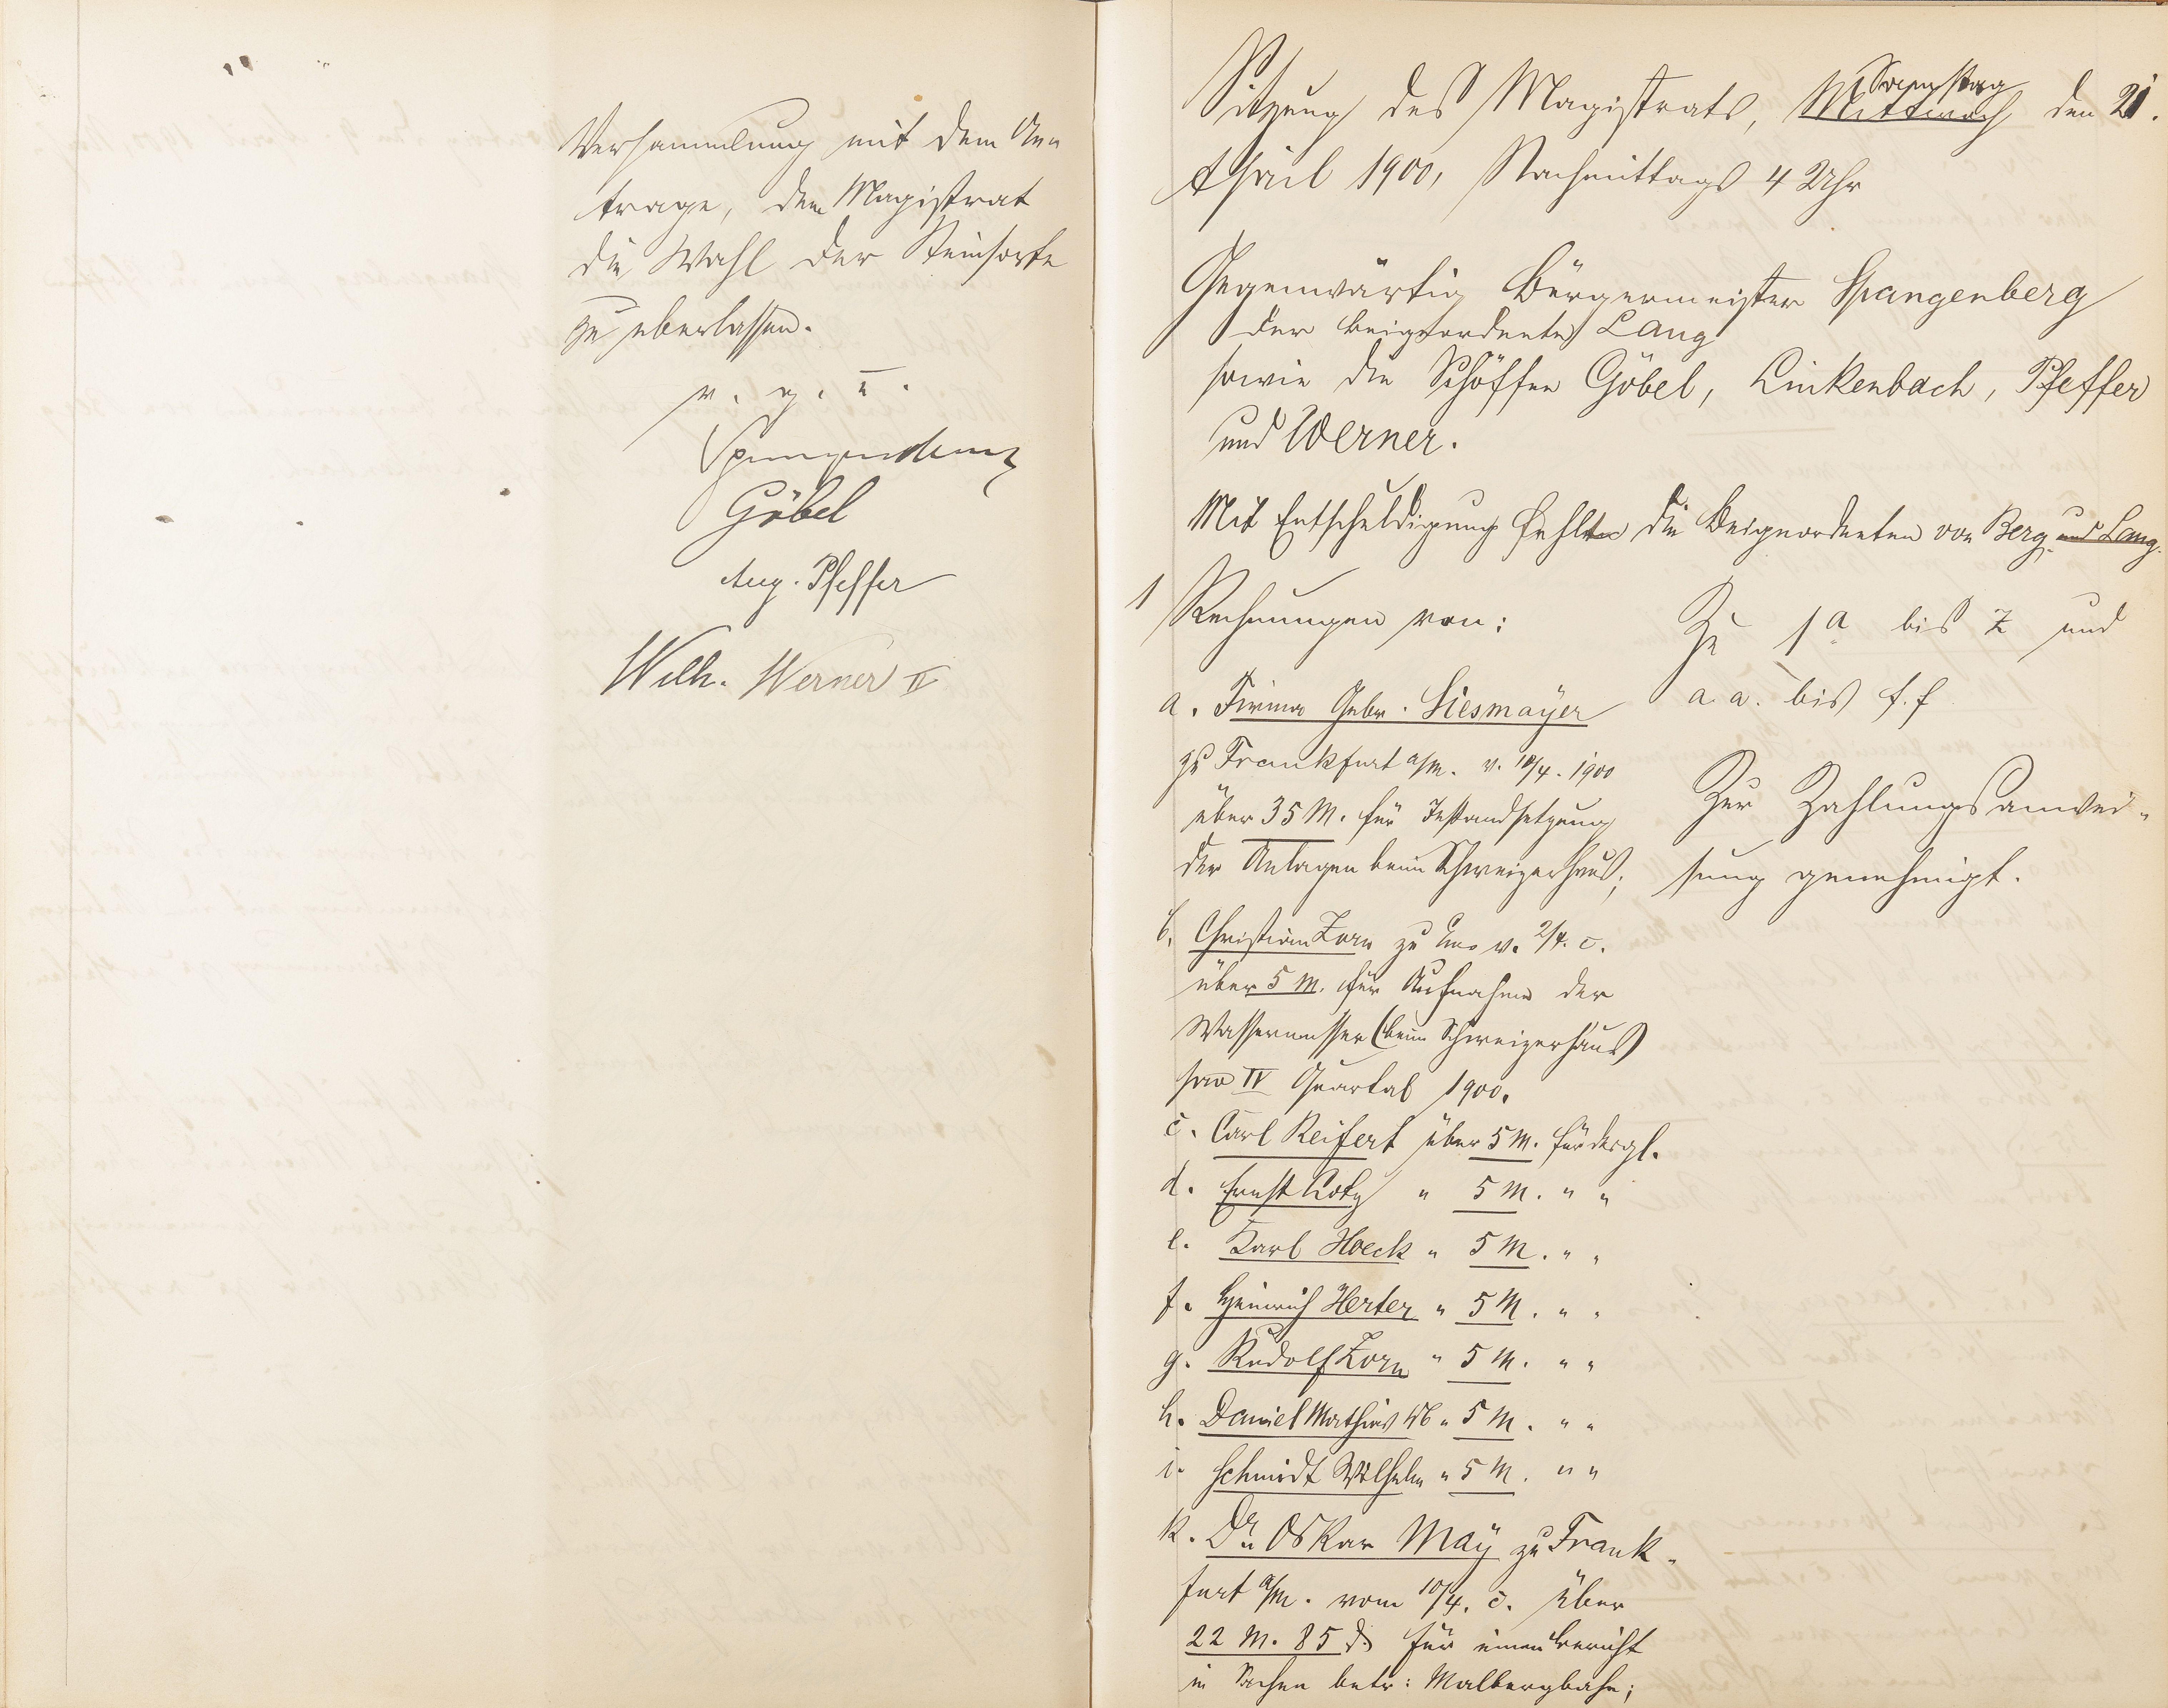 Versammlung mit dem An„
trage, dem Magistrat
die Wahl der Steinsorte
zu überlassen.
v. g. u.
Spangenberg
Göbel
Aug. Pfeffer
Wilh. Werner II
Samstag
Sitzung des Magistrats, Mittwoch, den 21.
April 1900, Nachmittags 4 Uhr
Gegenwärtig Bürgermeister Spangenberg
der Beigeordnete Lang
sowie die Schöffen Göbel, Linkenbach, Pfeffer
und Werner.
Mit Entschuldigung fehlten die Beigeordneten von Berg. und Lang.
1 Rechnungen von:
a. Firma Gebr. Siesmayer
zu Frankfurt a/M. v. 10/4. 1900
über 35 M. für Instandsetzung
der Anlagen beim Schweizerhaus;
b. Christian Zorn zu Ems v. 2/4. c.
über 5 M. für Aufnahme der
Wassermesser (beim Schweizerhaus)
pro IV Quartal 1900.
c. Carl Reifert über 5 M. für desgl.
d. Ernst Lotz " 5 M. " "
e. Karl Hoeck " 5 M. " "
f. Heinrich Herter " 5 M. " "
g. Rudolf Zorn " 5 M. " "
h. Daniel Mathias Wb " 5 M. " "
i. Schmidt Wilhelm " 5 M. " "
k. Dr. Oskar May zu Frank„
furt a/M. vom 10/4. c. über
22 M. 85 d. für einen Bericht
in Sachen betr: Malbergbahn;
Zu 1 a bis z und
a. a. bis f. f
Zur Zahlungsanwei„
sung genehmigt.